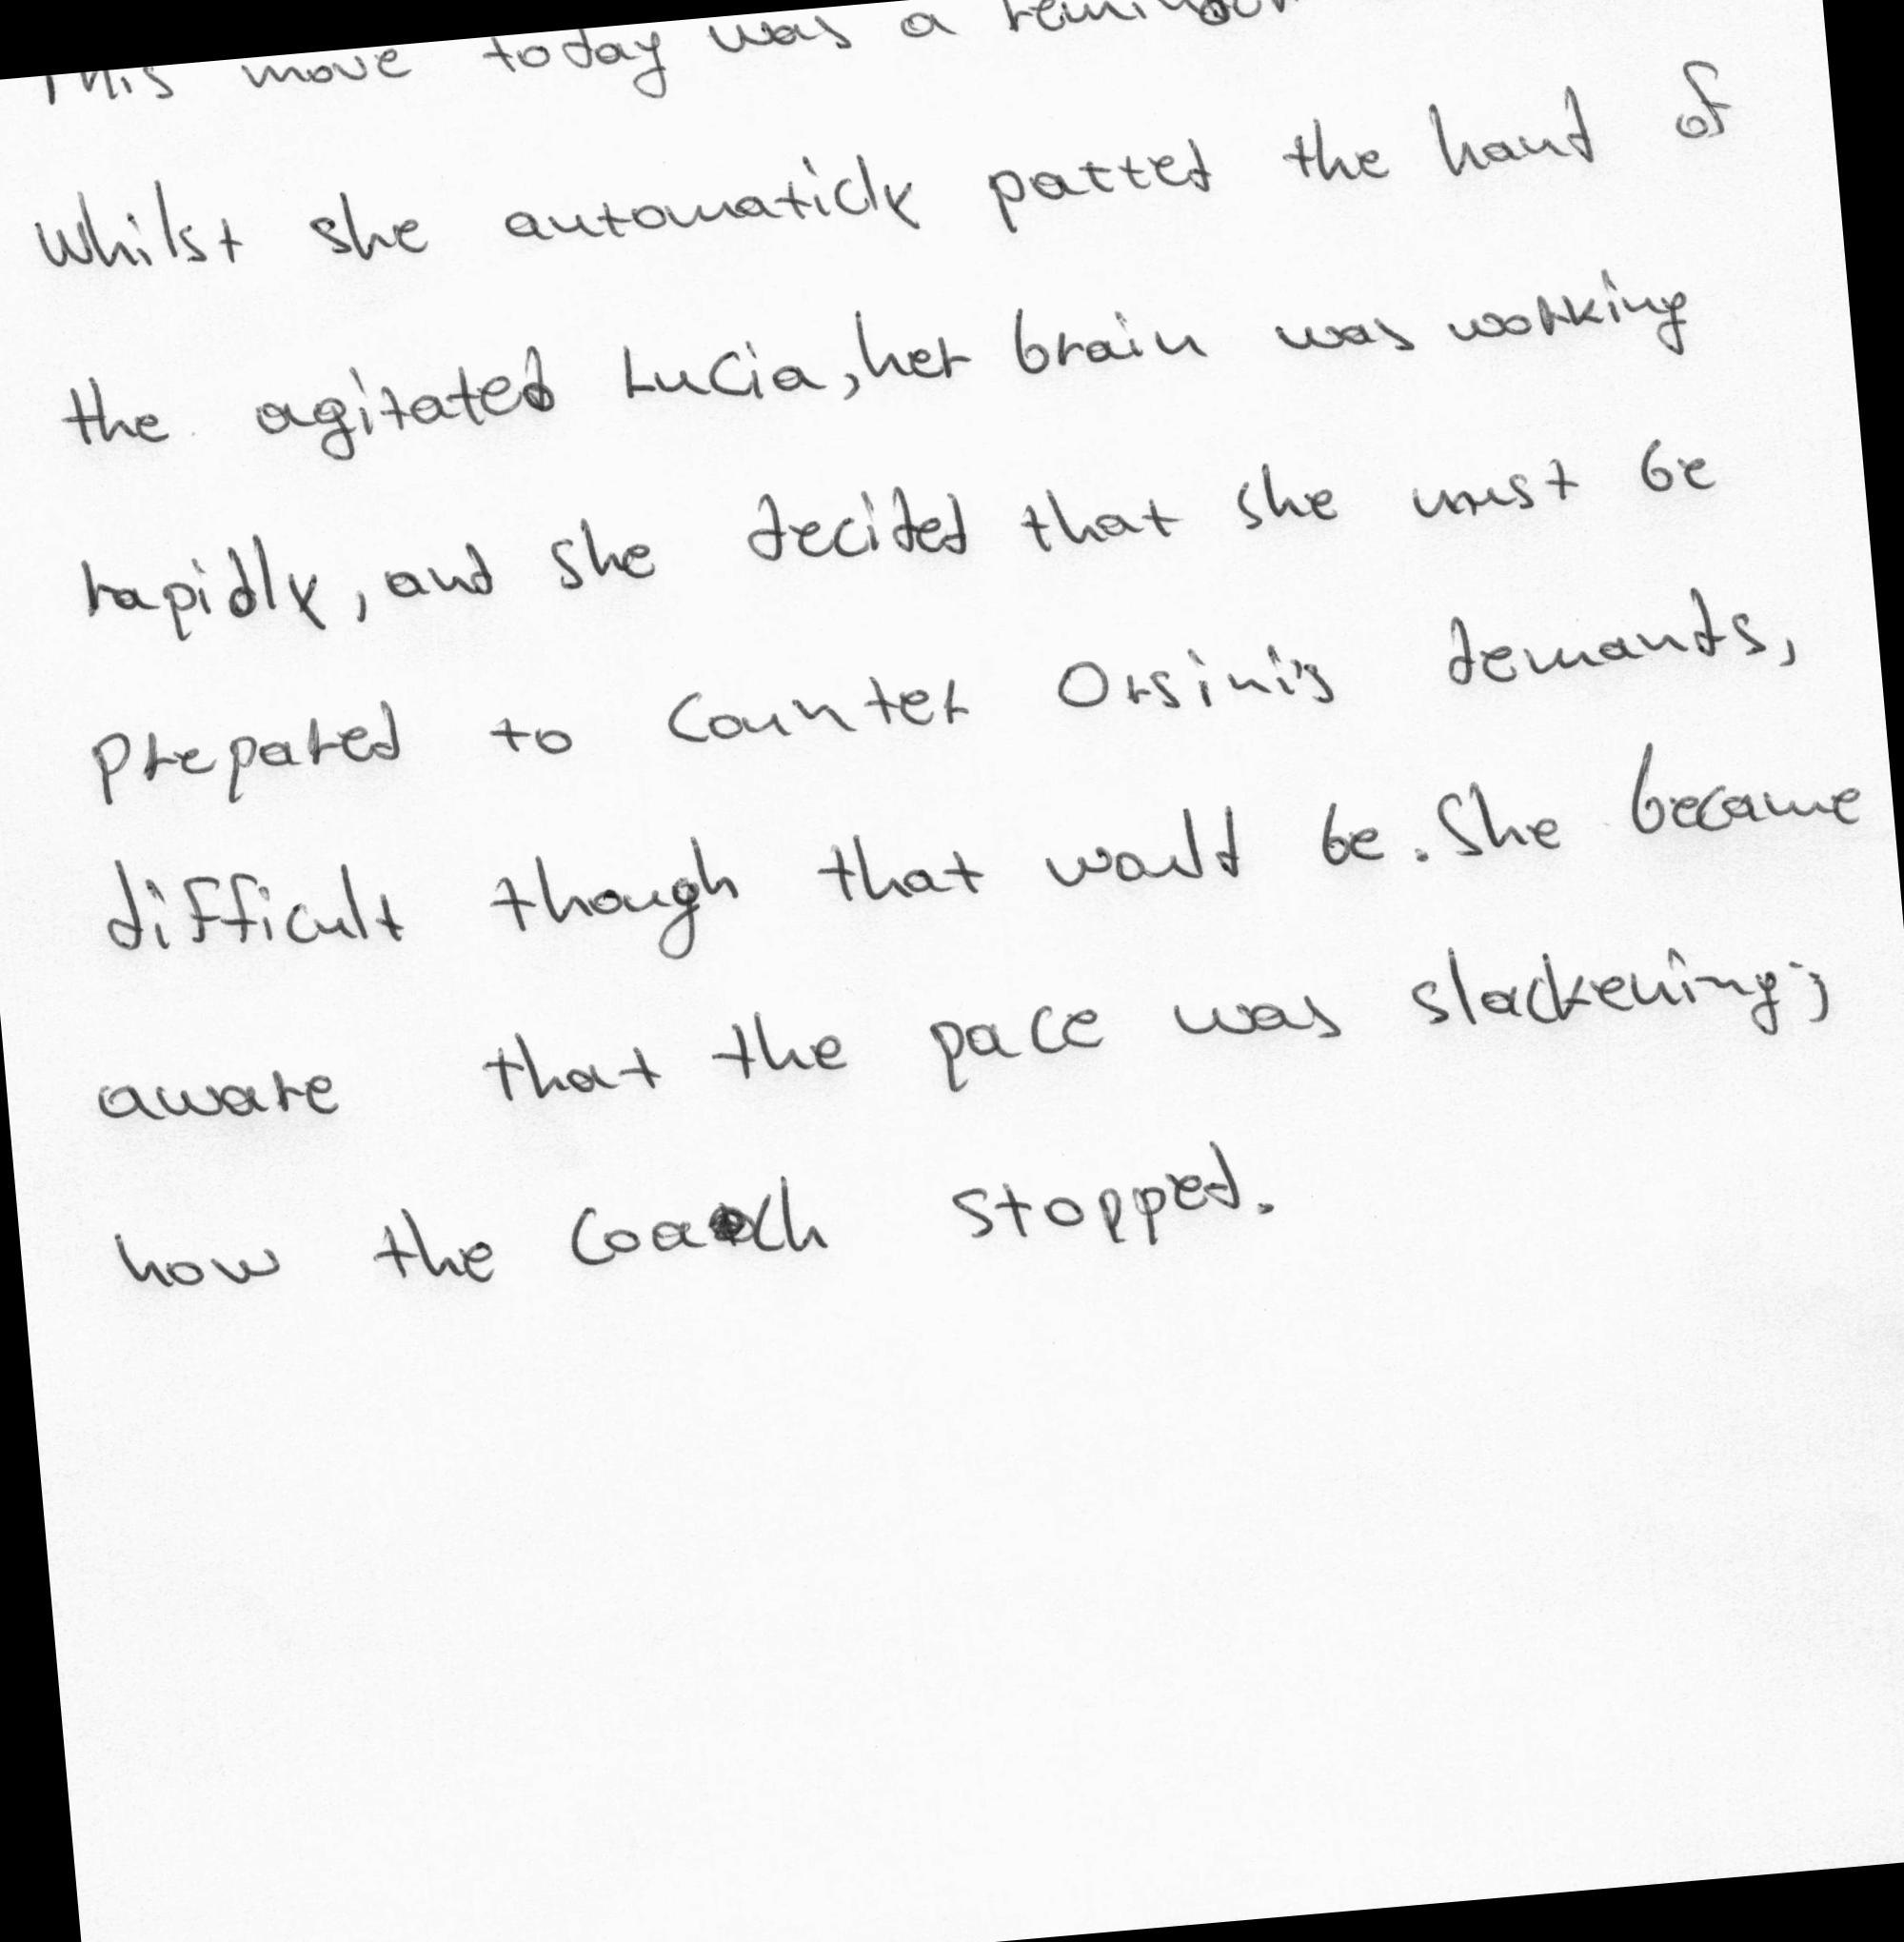 This move today was a reminder
whilst she automaticly patted the hand of
the agitated Lucia, her brain was working
rapidly, and she decided that she must be
prepared to counter Orsini's demands,
difficult though that would be. She became
aware that the pace was slackening;
now the coach stopped.